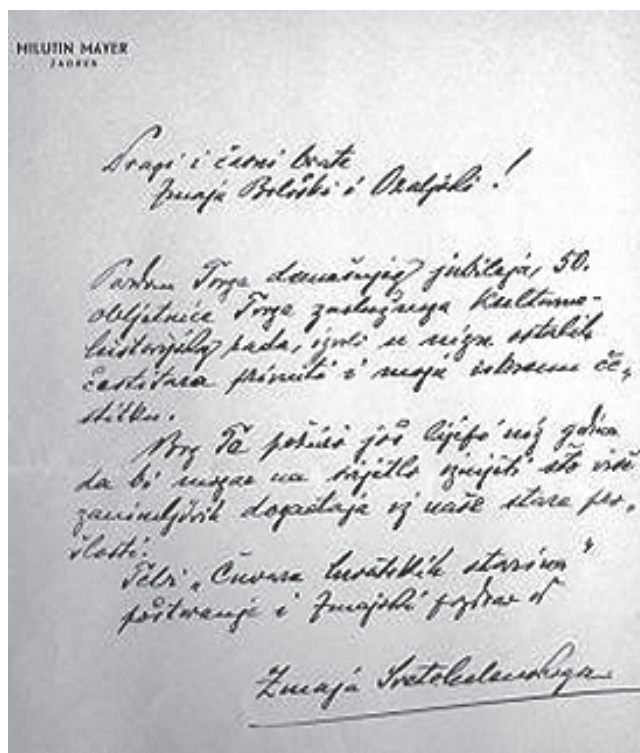 MILUTIN MAYER
ZAGREB
Dragi i časni brate
Zmaju Bološki i Ozaljski!
Povodom Tvoga današnjeg jubileja, 50.
obljetnice Tvoga zaslužnoga kulturno-
historijskog rada, izvoli u nizu ostalih
čestitara primiti i moju iskrenu če-
stitku.
Bog Te poživio još lijepi niz godina
da bi mogao na svjetlo iznijeti što više
zanimljivih događaja iz naše stare pro-
šlosti.
Tebi „Čuvaru hrvatskih starina"
poštovanje i Zmajski pozdrav od
Zmaja